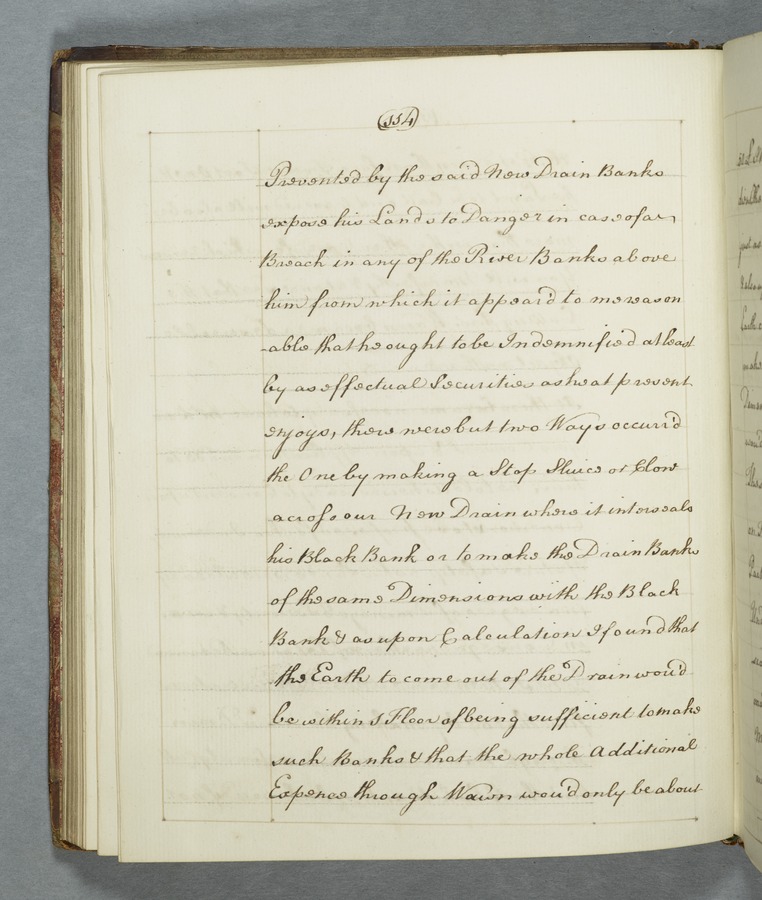 (114)
Prevented by the said New Drain Banks
expose his Lands to Danger in case of a
Breach in any of the River Banks above
him from which it appear'd to me reason
-able that he ought to be Indemnified at least
by as effectual Securities as he at present
enjoys, there were but two Ways occurr'd
the One by making a Stop Sluice or Clow
across our New Drain where it intersects
his Black Bank or to make the Drain Banks
of the same Dimensions with the Black
Bank & as upon Calculation I found that
the Earth to come out of the Drain wou'd
be within Floor of being sufficient to make
such Banks & that the whole Additional
Expence through Wawn wou'd only be about